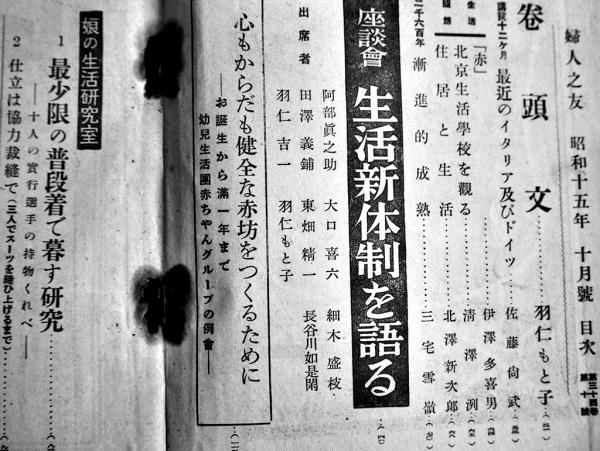 婦人之友 昭和十五年 十月號 目次
第三十四卷 第十號
卷頭文 羽仁もと子
講義十二ケ月 最近のイタリア及びドイツ 佐藤尙武
「赤」 伊澤多喜男
北京生活學校を觀る 淸澤洌
住居と生活 北澤新次郞
二千六百年 漸進的成熟 三宅雪嶺
座談會 生活新体制を語る
出席者
阿部眞之助 大口喜六 細木盛枝
田澤義鋪 東畑精一 長谷川如是閑
羽仁吉一 羽仁もと子
心もからだも健全な赤坊をつくるために
――お誕生から滿一年まで
幼兒生活團赤ちやんグループの例會――
娘の生活硏究室
1 最少限の普段着で暮す硏究
――十人の實行選手の持物くらべ――
2 仕立は協力裁縫で(三人でスーツを縫ひ上げるまで)